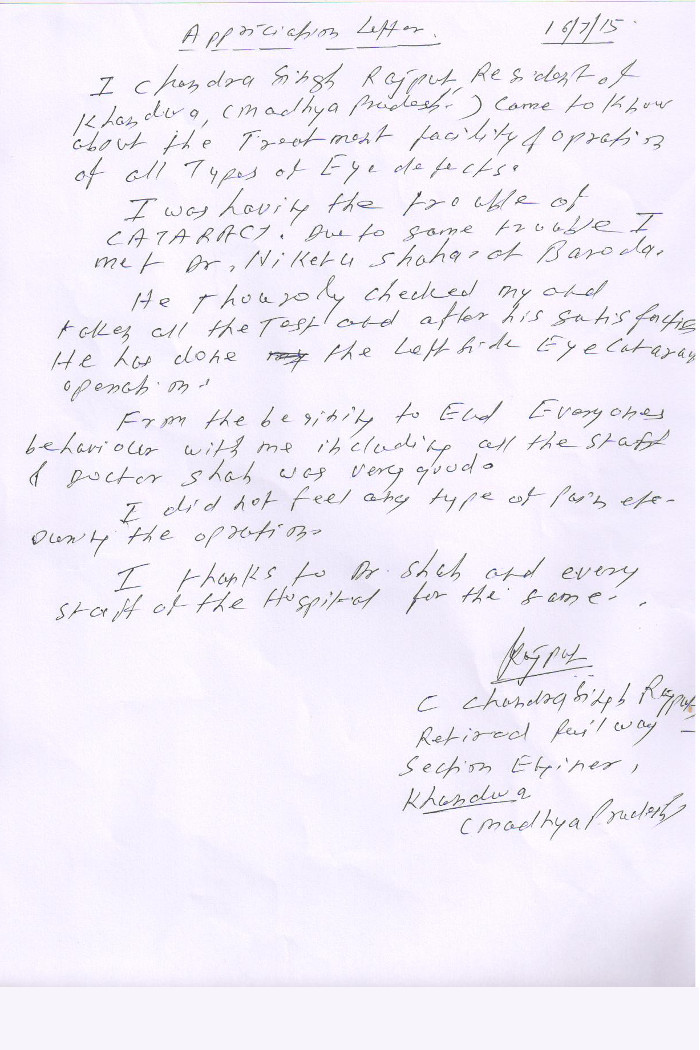 Appriciation Letter. 16/7/15.
I Chandra Singh Rajput, Resident of
Khandwa, (Madhya Pradesh.) Came to know
about the Treatment facility & opration
of all Types of Eye defects.
I was having the trouble of
CATARACT. Due to same trouble I
met Dr. Niketu Shah of Baroda.
He thouroly checked my and
taken all the Test and after his satisfaction
He has done the Left side Eye Cataract
operation.
From the begining to End Everyones
behaviour with me including all the staff
& Doctor Shah was very good.
I did not feel any type of Pain etc.
During the opration.
I thanks to Dr. Shah and every
staff of the Hospital for the same.
Rajput
( Chandra Singh Rajput
Retired Railway
Section Enginer,
Khandwa
(Madhya Pradesh)